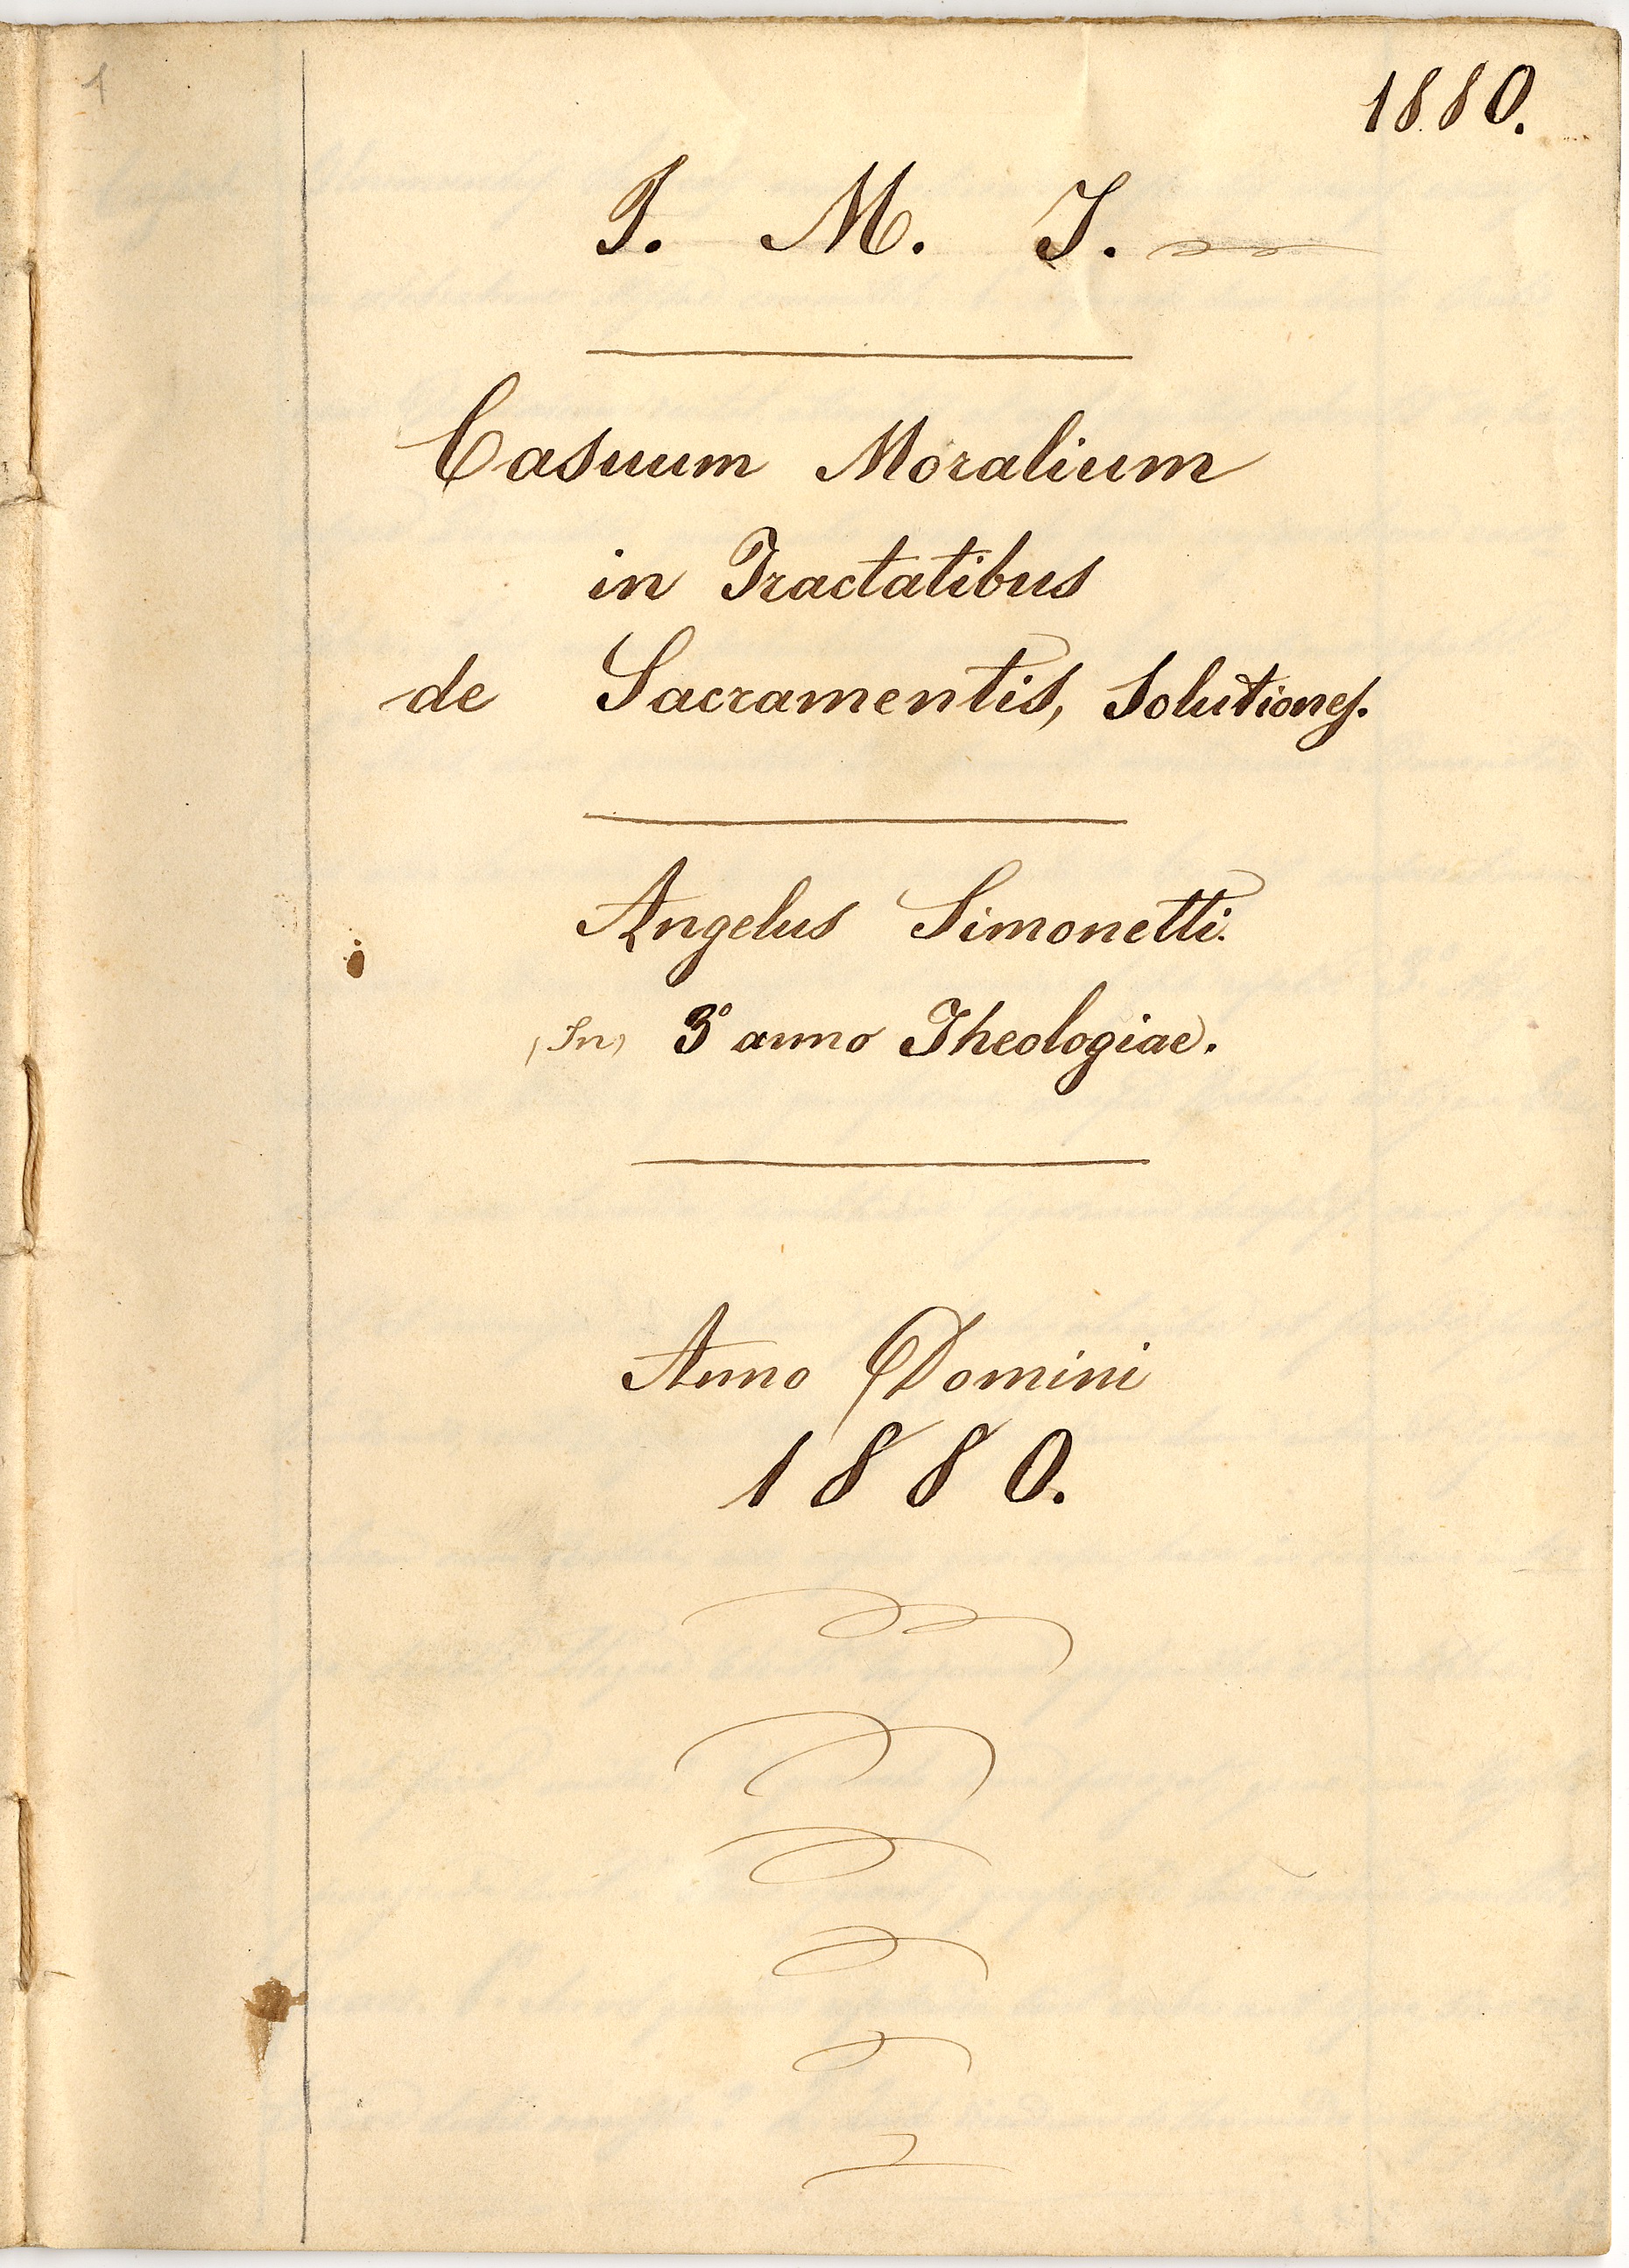 1
1880.
J. M. J.
Casuum Moralium
in Tractatibus
de Sacramentis, Solutiones.
Angelus Simonetti.
(In) 3º anno Theologiae.
Anno Domini
1880.